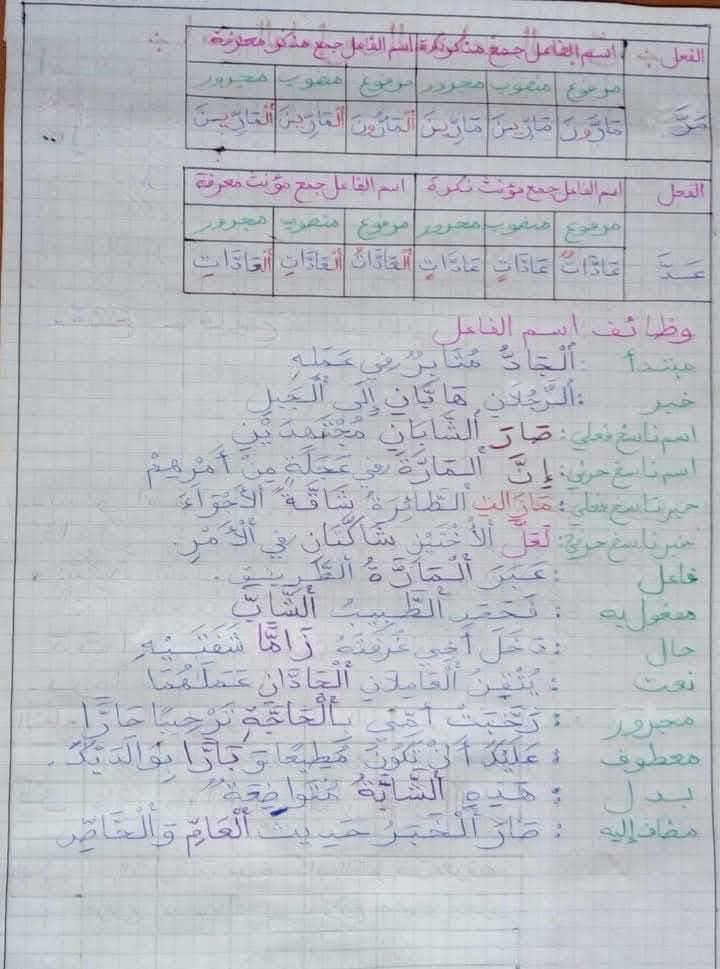 الفعل اسم الفاعل جمع مذكر نكرة اسم الفاعل جمع مذكر معرفة
مرفوع منصوب مجرور مرفوع منصوب مجرور
مَرَّ مَارُّونَ مَارِّينَ مَارِّينَ اَلْمَارُّونَ اَلْمَارِّينَ اَلْمَارِّينَ
الفعل اسم الفاعل جمع مؤنث نكرة اسم الفاعل جمع مؤنث معرفة
مرفوع منصوب مجرور مرفوع منصوب مجرور
عَدَّ عَادَّاتٌ عَادَّاتٍ عَادَّاتٍ اَلْعَادَّاتُ اَلْعَادَّاتِ اَلْعَادَّاتِ
وظائف اسم الفاعل
مبتدأ : اَلْجَادُّ مُثَابِرٌ فِي عَمَلِهِ
خبر : اَلرَّجُلَانِ هَامَّانِ إِلَى الْجَبَلِ
اسم ناسخ فعلي : صَارَ اَلشَّابَانِ مُجْتَهِدَيْنِ
اسم ناسخ حرفي : إِنَّ اَلْمَارَّةَ فِي عَجَلَةٍ مِنْ أَمْرِهِمْ
خبر ناسخ فعلي : مَازَالَتِ اَلطَّائِرَةُ شَاقَّةً اَلْأَجْوَاءَ
خبر ناسخ حرفي : لَعَلَّ اَلْأُخْتَيْنِ شَاكَّتَانِ فِي الْأَمْرِ.
فاعل : عَبَرَ اَلْمَارَّةُ اَلطَّرِيقَ.
مفعول به : اَلطَّبِيبُ اَلشَّابَّ
حال : دَخَلَ أَخِي غُرْفَتَهُ زَامًّا شَفَتَيْهِ
نعت : يُتْقِنُ اَلْعَامِلَانِ اَلْجَادَّانِ عَمَلَهُمَا
مجرور : رَحَّبَتْ أُمِّي بِالْحَاجَّةِ تَرْحِيبًا حَارًّا
معطوف : عَلَيْكَ أَنْ تَكُونَ مُطِيعًا وَ بَارًّا بِوَالِدَيْكَ.
بدل : هَذِهِ اَلشَّابَّةُ مُتَوَاضِعَةٌ
مضاف إليه : صَارَ اَلْخَبَرُ حَدِيثَ اَلْعَامِّ وَالْخَاصِّ